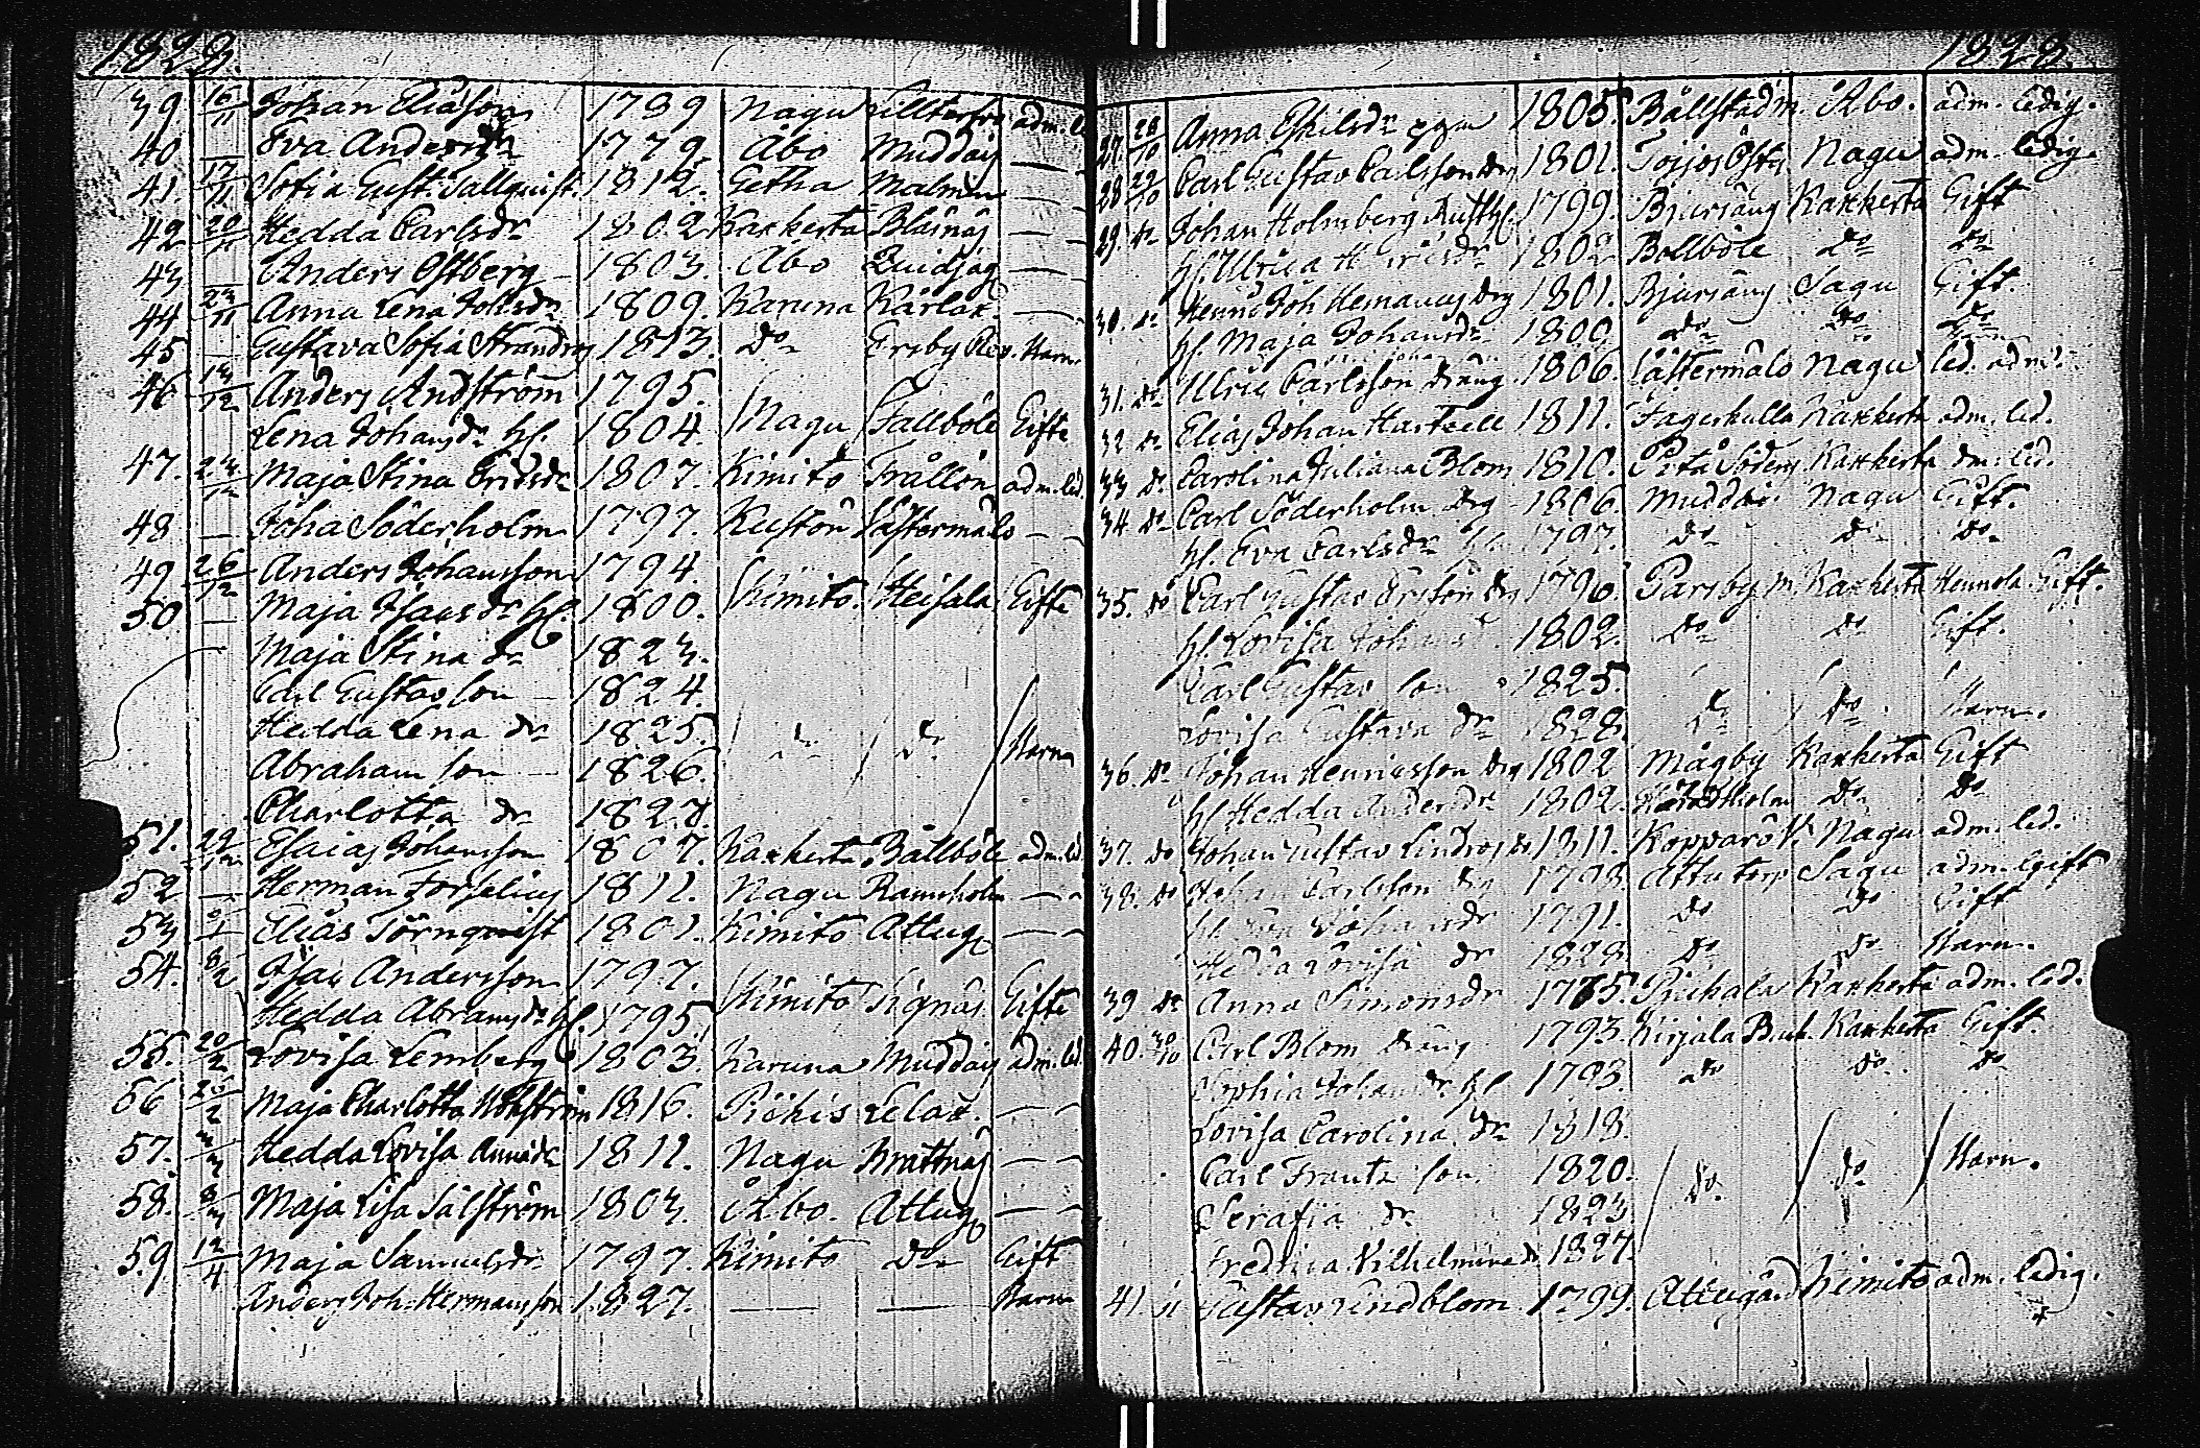 1828.
39 16/11 Johan Eliasson 1789 Nagu adm. l
40 — Eva Andersdr 1779. Åbo Muddais —
41. 17/11 Sofia Gust. Sallquist. 1812. Getha Malmen —
42 20/11 Hedda Carlsdr 1802 Kaxkerta Bläsnäs —
43 — Anders Östberg 1803. Åbo Qvidja —
44 23/11 Anna Lena Johsdr 1809. Karuna Kärlax. —
45 — Gustava Sofia 1813. Do Ersby Barn.
46 13/12 Anders Andström 1795.
Lena Johansdr h. 1804 Nagu Fallböle Gifte
47. 23/12 Maja Stina Ericsdr 1807. Kimito Frållön adm. led
48 — Joha Söderholm 1797. Kustö Västermålo —
49 26/12 Anders Johansson 1794.
50 — Maja Isacsdr h. 1800. Kimito. Heisala Gifte
Maja Stina dr 1823.
Carl Gustav son — 1824.
Hedda Lena dr 1825. do do Barn
Abraham son — 1826.
Charlotta dr 1828.
51. 29/12 Esaias Johansson 1807. Kaxkerta Bållböle adm. led.
52 — Herman Forselius 1811. Nagu Ramsholm —
53 Elias Törnqwist 1801. Kimito Attug —
54. 8/2 Isac Andersson 1797.
Hedda Abramsdr h. 1795. Kimito Tignäs Gifte
55. 20/2 Lovisa Lemberg 1803. Karuna Muddais adm. led.
56 26/2 Maja Charlotta 1816. Pikis Lelax. —
57. 3/3 Hedda Lovisa 1811. Nagu Krattnäs —
58. 8/3 Maja Lisa Sälström 1803. Åbo. Attug —
59. 12/4 Maja Samuelsdr 1797. Kimito do Gift
Anders Joh. Hermansson 1827. — — Barn
1828
27. 28/10 Anna Eskilsdr pgn 1805. Bållstad m. Åbo. adm. ledig.
28 29/10 Carl Gustav Carlsson drg 1801. Nagu adm. ledig.
29. do Johan Holmberg 1799. Bjursäng Kaxkerta Gift
h. Ulrica 1802 Bollböle do do
30. do Henric Joh Hemanus drg 1801. Bjursäng Sagu Gift.
h. Maja Johansdr 1800. do do do
31. do Ulric Carlsson dräng 1806. Västermålo Nagu led. adm.
32 do Elias Johan Hartvell 1811. Fagerkulla Kaxkerta adm. led.
33 do Carolina Juliana Blom 1810. Kaxkerta dm. led.
34. do Carl Söderholm drg 1806. Muddais Nagu Gift.
h. Eva Carlsdr 1797. do do do
35. do Carl Gustav drg 1796. Parsby m. Kaxkerta Gift.
h. Lovisa 1802. do do Gift.
Carl Gustav son 1825.
Lovisa Gustava dr 1828. do do Barn.
36. do Johan Henricsson drg 1802 Mågby Kaxkerta Gift
h. Hedda Andersdr 1802. do do
37. do Johan Gustav Lindros 1811. Kopparö Nagu adm. led.
38. do Johan Carlsson drg 1798 Attu torp Sagu adm. Gift
h. Eva Johansdr 1791. do do Gift
Hedda Lovisa dr 1828 do do Barn.
39 do Anna Simonsdr 1765. Kaxkerta adm. led.
40. 30/10 Carl Blom dräng 1793. Kirjala Kaxkerta Gift.
Sophia Johansdr h. 1793. do do do
Lovisa Carolina dr 1818.
Carl Frantz son 1820. do. do Barn.
Serafia dr. 1823
Fredrica Vilhelmina dr 1827.
41. Gustav Lindblom 1799. Attugård Kimito adm. ledig.